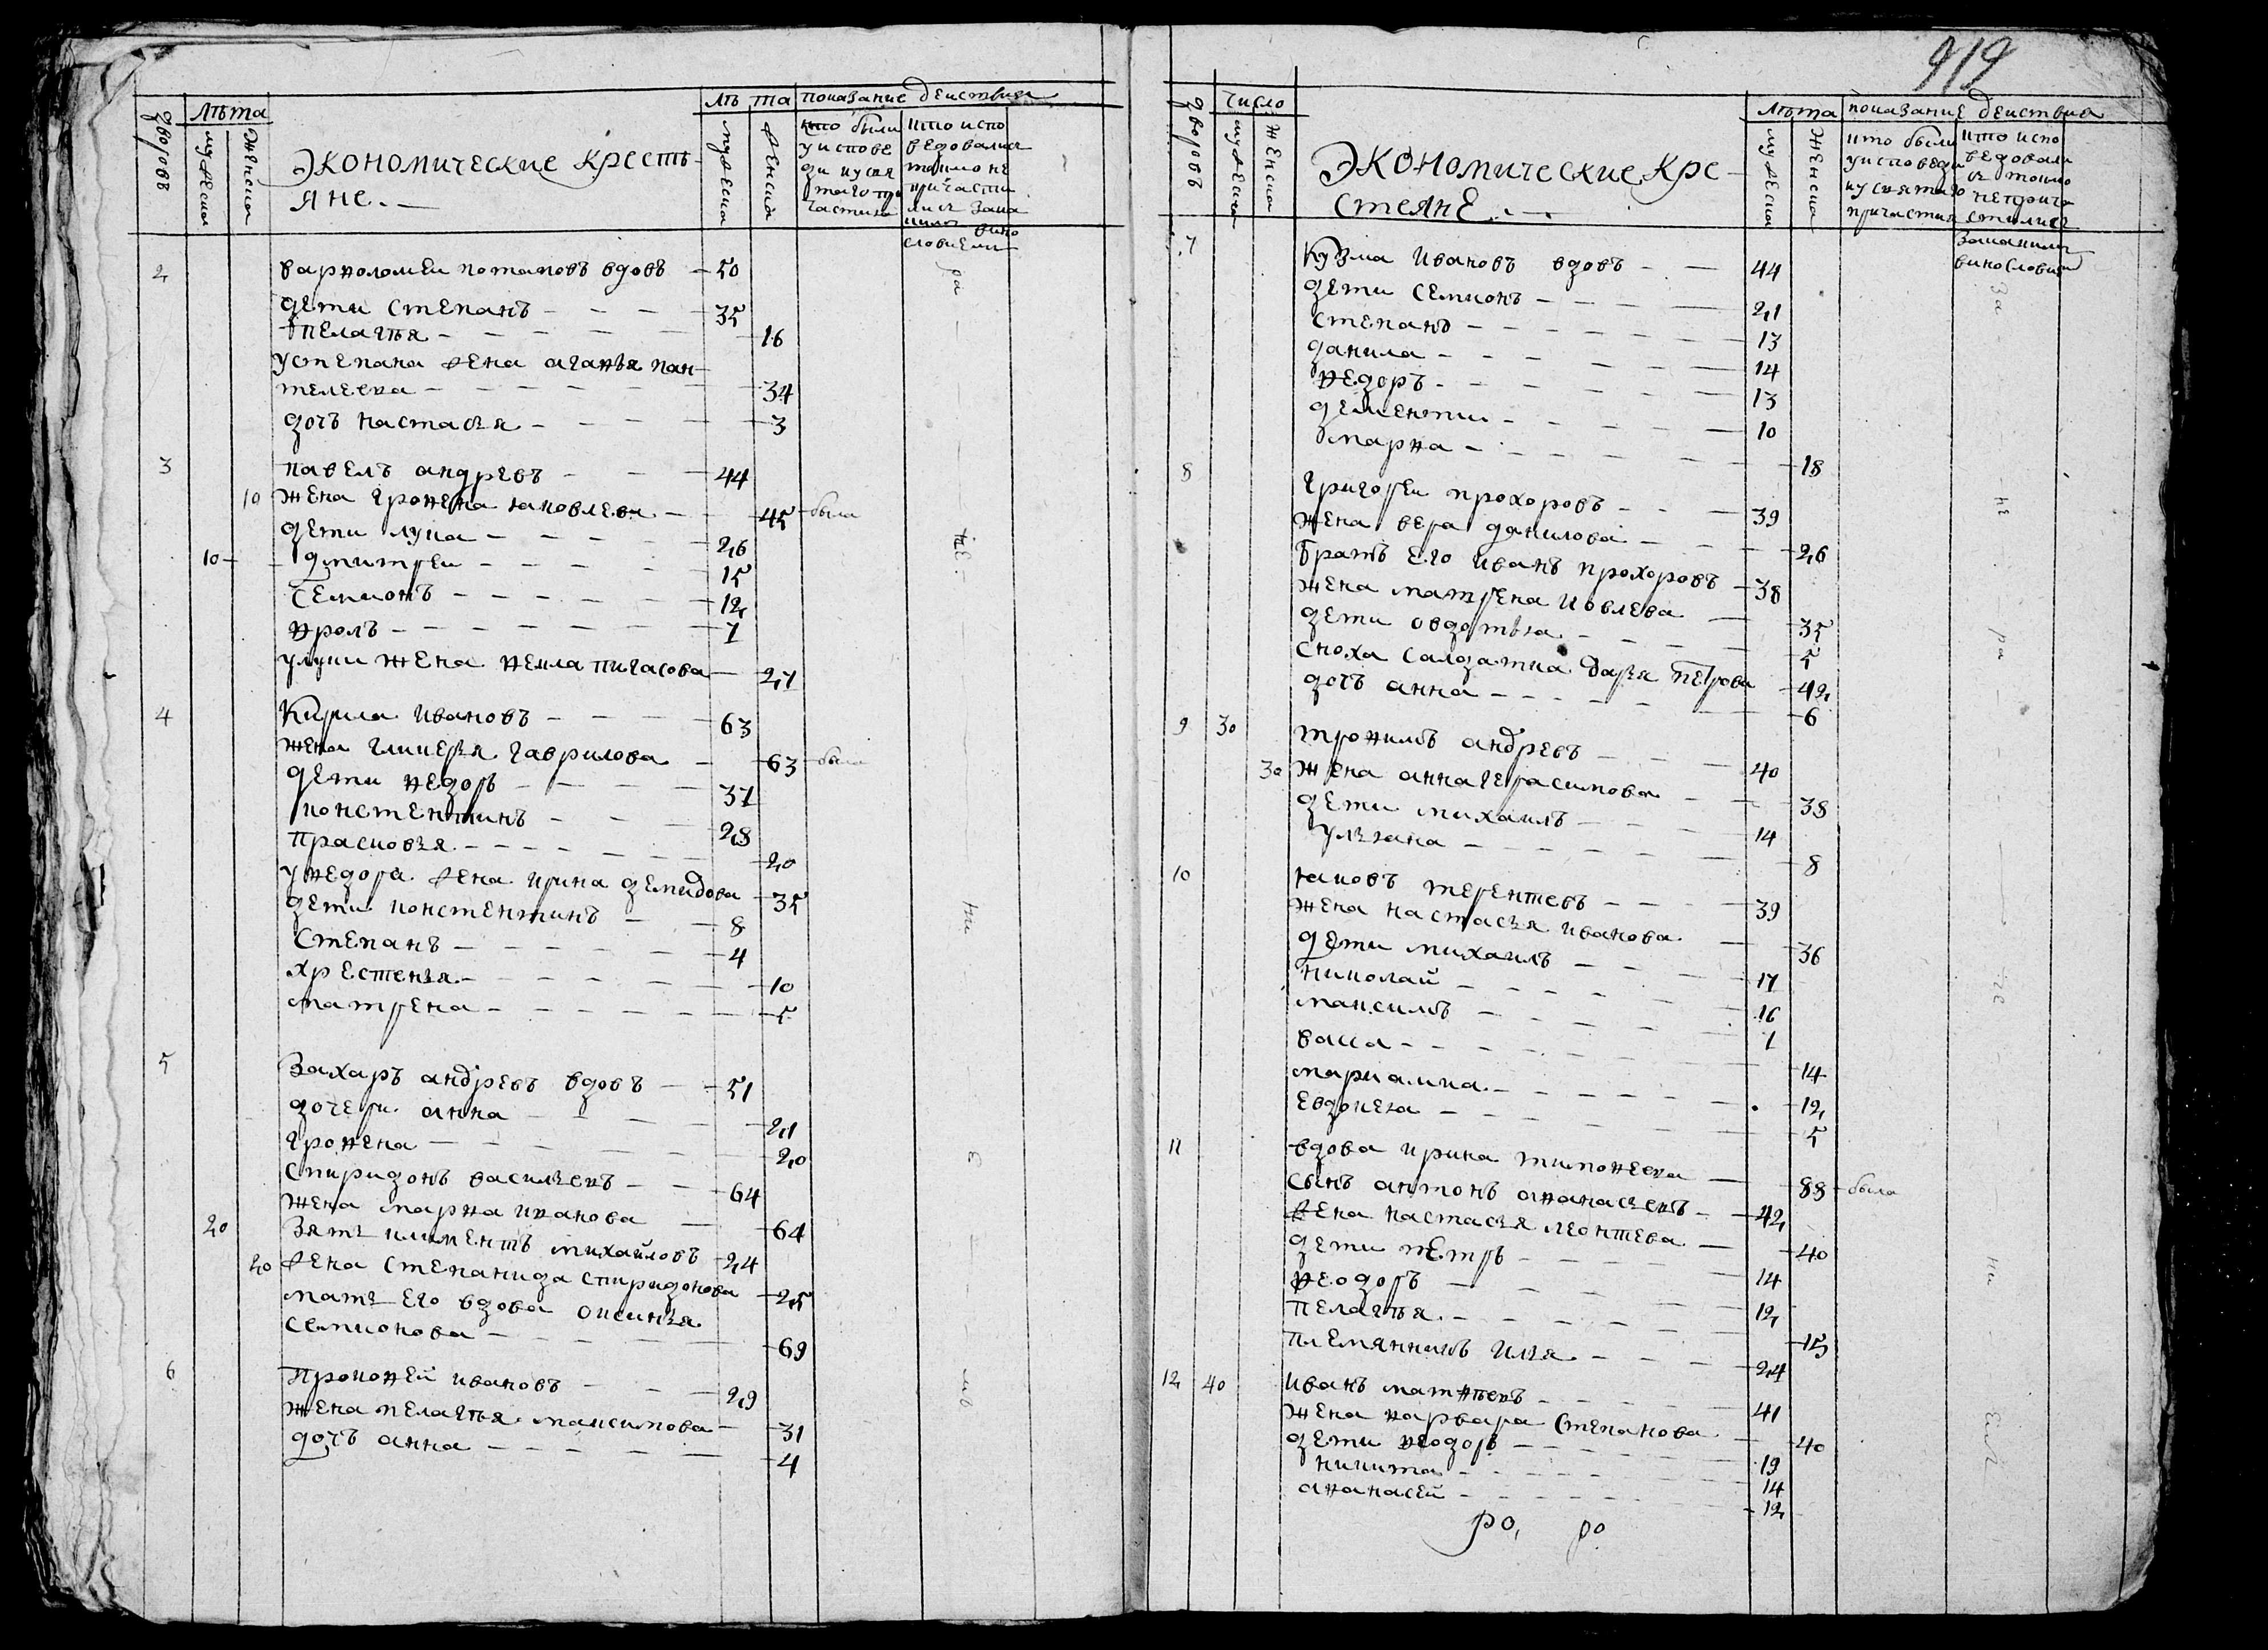 дворовъ
Лѣта
мужеска
женска
Экономические кресть
яне.
Лѣ та
мужеска
женска
показание действия
кто были
у испове
ди и у свя
таго при
частия
кто испо
ведовался
токмо не
причасти
лися
вино
словиемъ
2
варфоломеи потаповъ вдовъ 50
дети степанъ 35
пелагѣя 16
у степана жена агафья пан
телеева 34
дочь настасья 3
3
павелъ андревъ 44
10 жена грофена яковлева 45 была
дети лука 26
10 дмитреи 15
семионъ 12
фролъ 7
у луки жена фекла пигасова 27
4
Кирила ивановъ 63
жена гликерья гаврилова 63 была
дети федоръ 37
константинъ 28
прасковья 20
у федора жена ирина демидова 35
дети констентинъ 8
степанъ 4
хрестенья 10
матрена 5
5
Захаръ андревъ вдовъ 51
дочери анна 21
грофена 20
спиридонъ васильевъ 64
жена марфа иванова 64
20 зять климентъ михайловъ 24
20 жена степанида спиридонова 25
мать его вдова оксинья
семионова 69
6
Прокофей ивановъ 29
жена пелагѣя максимова 31
дочь анна 4
919
дворовъ
число
мужеска
женска
Экономические кре
стеяне.
Лѣта
мужеска
женска
показание действия
кто были
у исповеди
и у святаго
причастия
кто испо
ведовали
ся токмо
не прича
стились
винословия
7
Кузма Ивановъ вдовъ 44
дети семионъ 21
степанъ 13
данила 14
федоръ 13
дементии 10
марфа 18
8
Григореи прохоровъ 39
жена вера данилова 26
братъ его иванъ прохоровъ 38
жена матрена иовлева 35
дети овдотья 5
сноха салдатка дарья петрова 42
дочь анна 6
9 30
трофимъ андревъ 40
30 жена анна герасимова 38
дети михаилъ 14
ульяна 8
10
яковъ терентевъ 39
жена настасья иванова 36
дети михаилъ 17
николай 16
максимъ 7
васса 14
мариамна 12
евдокея 5
11
вдова ирина тимофеева 88 была
сынъ антонъ афанасьевъ 42
жена настасья леонтева 40
дети петръ 14
феодоръ 12
пелагѣя 15
племянникъ илья 24
12 40
иванъ матфѣевъ 41
жена варвара степанова 40
дети феодоръ 19
никита 14
афанасей 12